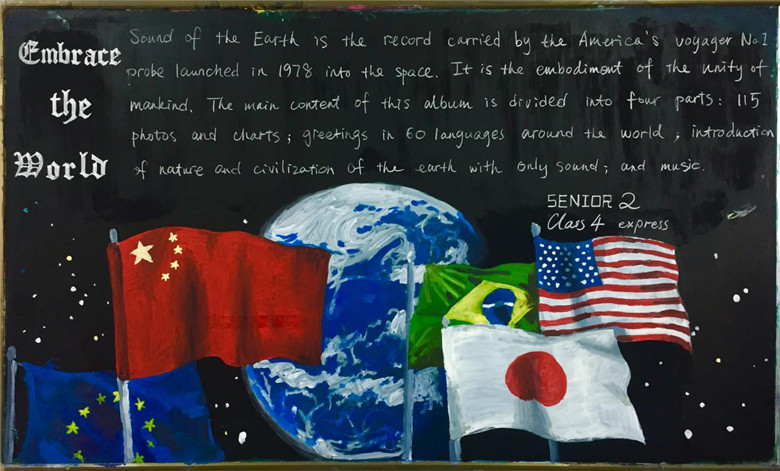 Embrace
the
World
Sound of the Earth is the record carried by the America's voyager No.1
probe launched in 1978 into the space. It is the embodiment of the unity of
mankind. The main content of this album is divided into four parts: 115
photos and charts; greetings in 60 languages around the world; introduction
of nature and civilization of the earth with only sound; and music.
SENIOR 2
Class 4 express